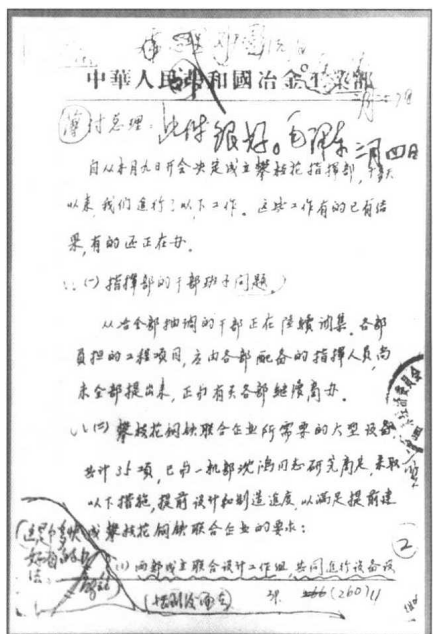 中華人民共和國冶金工業部
薄付总理：
此件很好。毛泽东
二月四日
自从本月九日开会决定成立攀枝花指挥部，
以来，我们进行了以下工作。这些工作有的已有结
果，有的还正在办。
(一) 指挥部的干部班子问题。
从冶金部抽调的干部正在陆续调集。各部
负担的工程项目，应由各部配备的指挥人员，尚
未全部提出来，正由有关各部继续商办。
(二) 攀枝花钢铁联合企业所需要的大型设备
共计35项，已与一机部沈鸿同志研究商定，采取
以下措施，提前设计和制造进度，以满足提前建
成攀枝花钢铁联合企业的要求：
(1) 两部成立联合设计工作组，共同进行设备设
这是多快
好省的办
法。
②
(260)